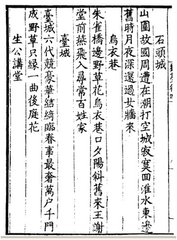 石頭城
山圍故國周遭在潮打空城寂寞回淮水東邊
舊時月夜深還過女牆來
烏衣巷
朱雀橋邊野草花烏衣巷口夕陽斜舊來王謝
堂前燕飛入尋常百姓家
臺城
臺城六代競豪華結綺臨春事最奢萬戶千門
成野草只緣一曲後庭花
生公講堂